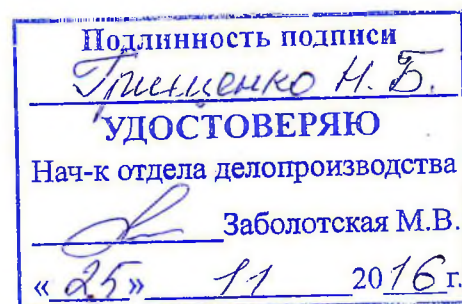 Подлинность подписи
Грищенко Н. Б.
УДОСТОВЕРЯЮ
Нач-к отдела делопроизводства
Заболотская М.В.
« 25 » 11 2016 г.